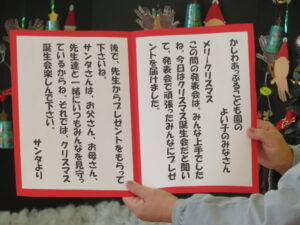 かしわあっぷるこども園の
よい子のみなさん
メリークリスマス
この間の発表会は、みんな上手でした
ね。今日はクリスマス誕生会だと聞い
て、発表会で頑張ったみんなにプレゼ
ントを届けました。
後で、先生からプレゼントをもらって
下さいね。
サンタさんは、お父さん、お母さん、
先生達と一緒にいつもみんなを見守っ
ているからね。それでは、クリスマス
誕生会楽しんで下さい。
サンタより